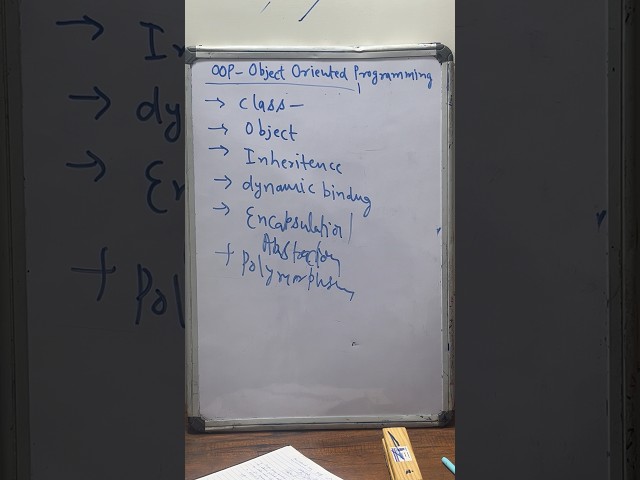 OOP - Object Oriented Programming
→ class -
→ Object
→ Inheritence
→ dynamic binding
→ Encapsulation /
Abstraction
+ Polymorphism